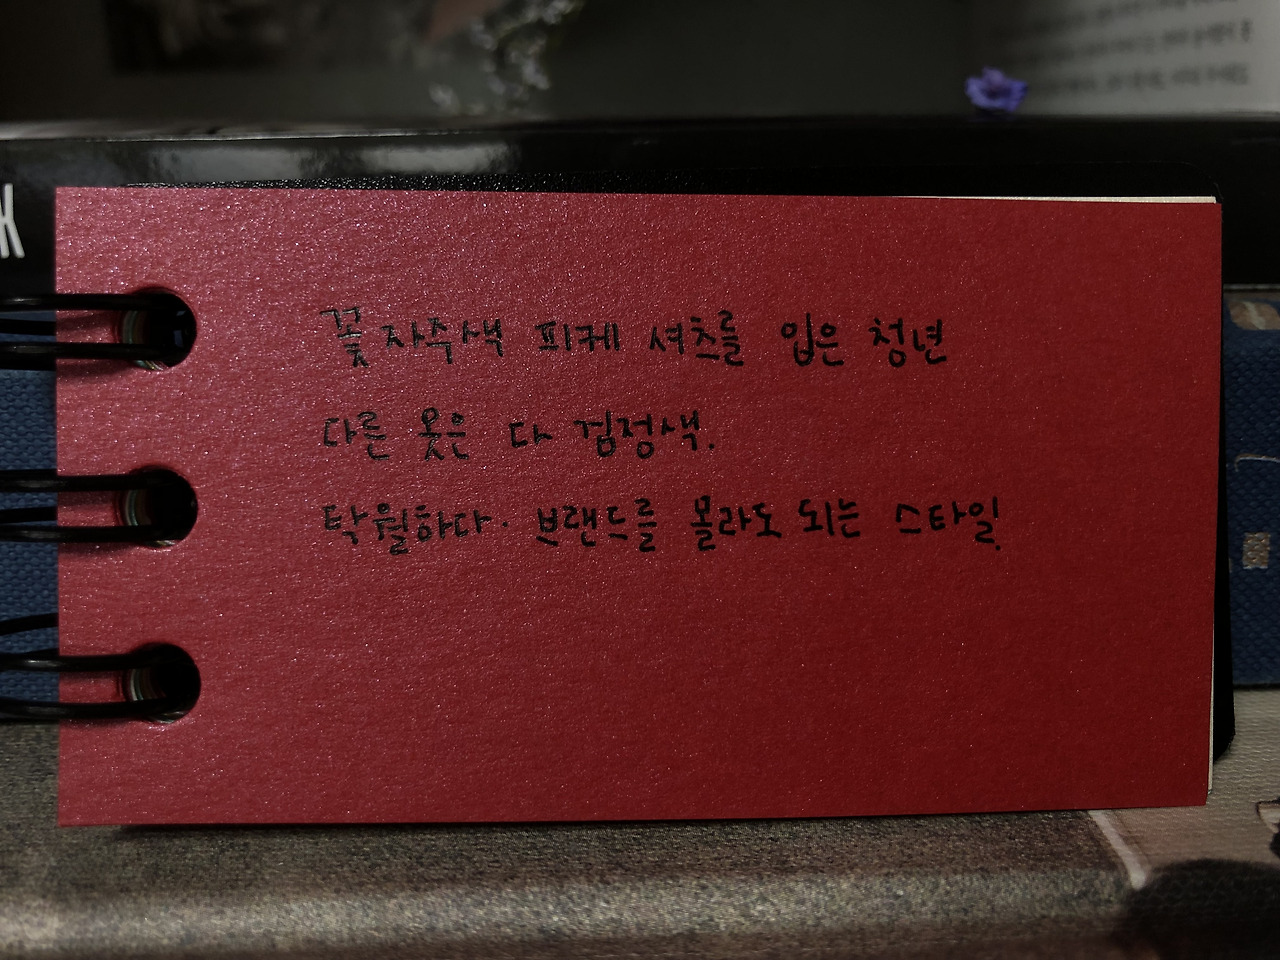 꽃자주색 피케 셔츠를 입은 청년
다른 옷은 다 검정색.
탁월하다. 브랜드를 몰라도 되는 스타일.